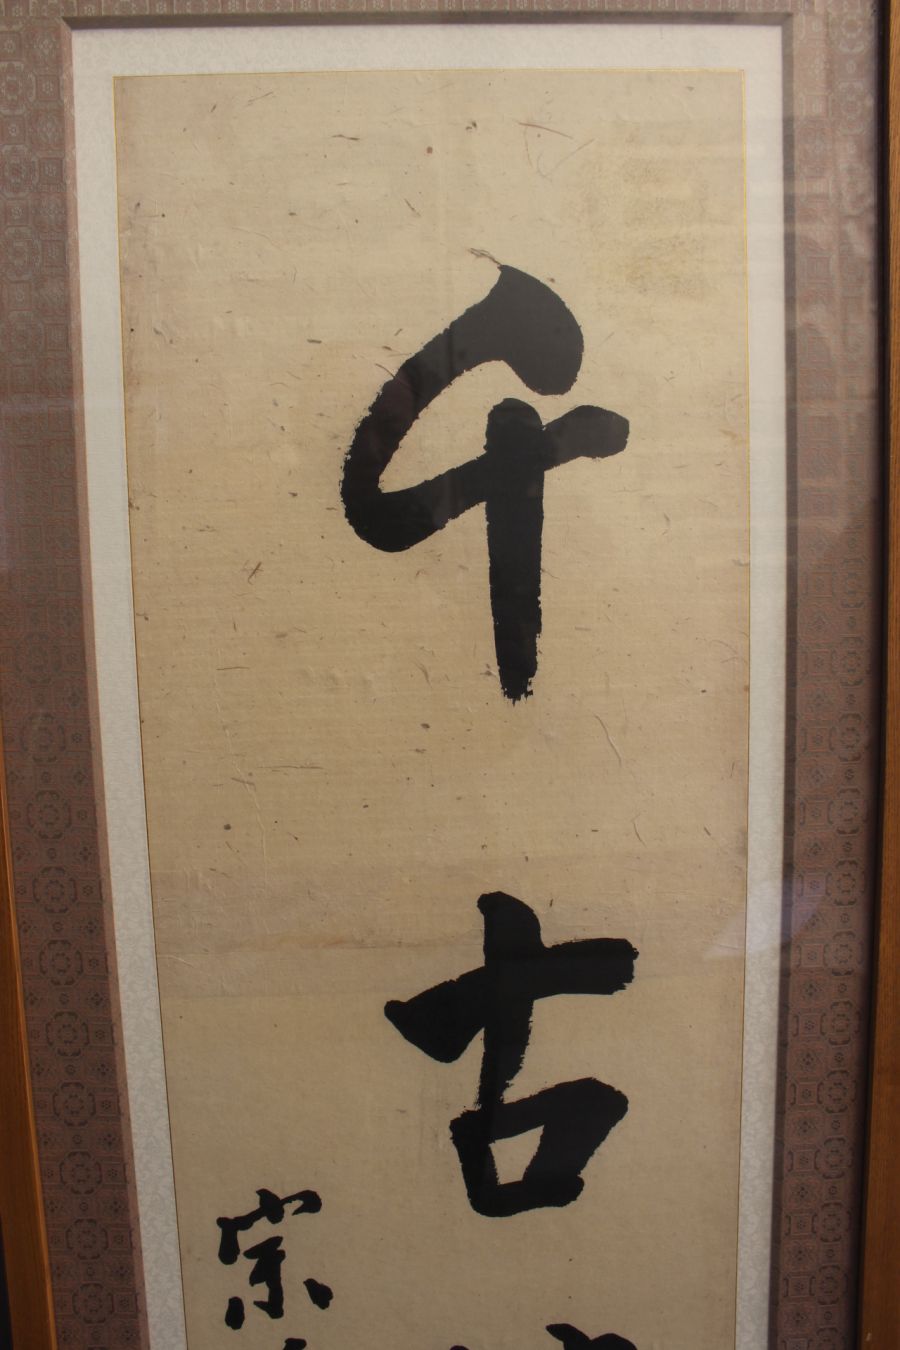 千古
宗